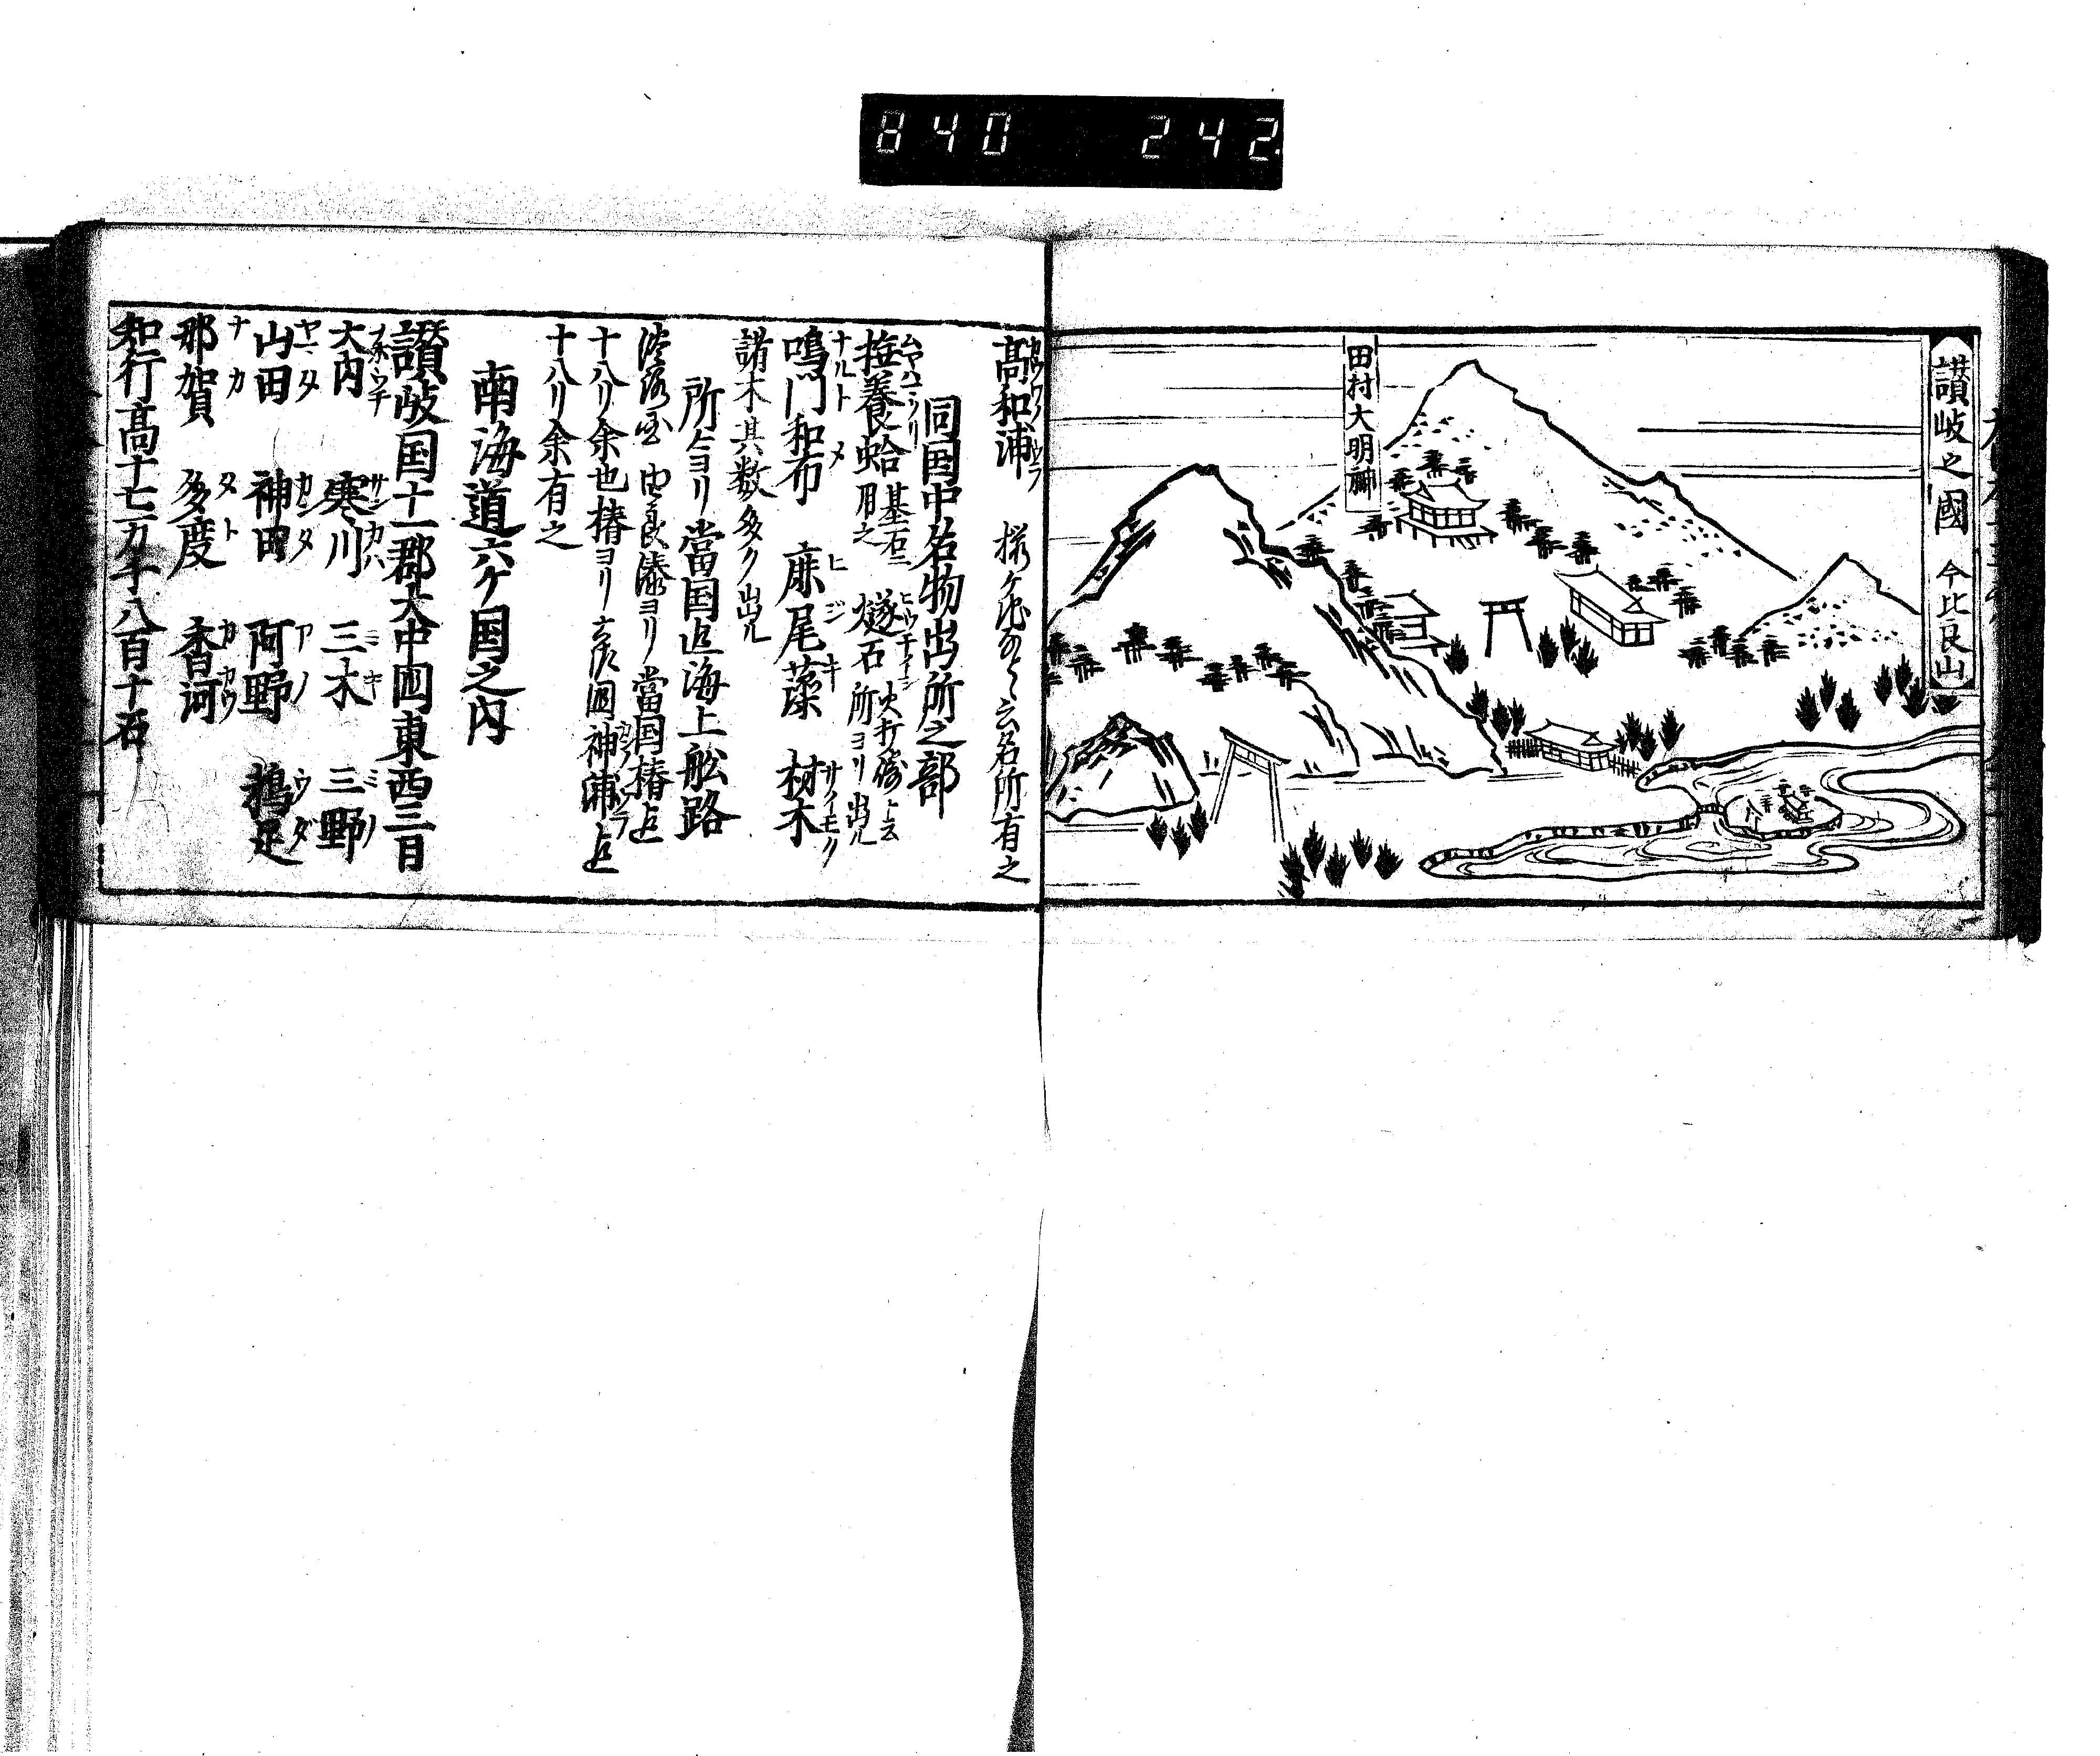 840 242
讃岐之國 今比良山
田村大明神
高和浦 有之
同国中名物出所之部
撫養蛤 碁石ニ用之 燧石 所ヨリ出ル
鳴門和布 鹿尾藻 材木
諸木其数多ク出ル
所々ヨリ當国迄海上舩路
ヨリ當国椿迄
十八リ余也椿ヨリ 神浦迄
十八リ余有之
南海道六ケ国之内
讃岐国十一郡大中国東西三日
大内 寒川 三木 三野
山田 神田 阿野 鵜足
那賀 多度 香河
知行高十七万千八百十石